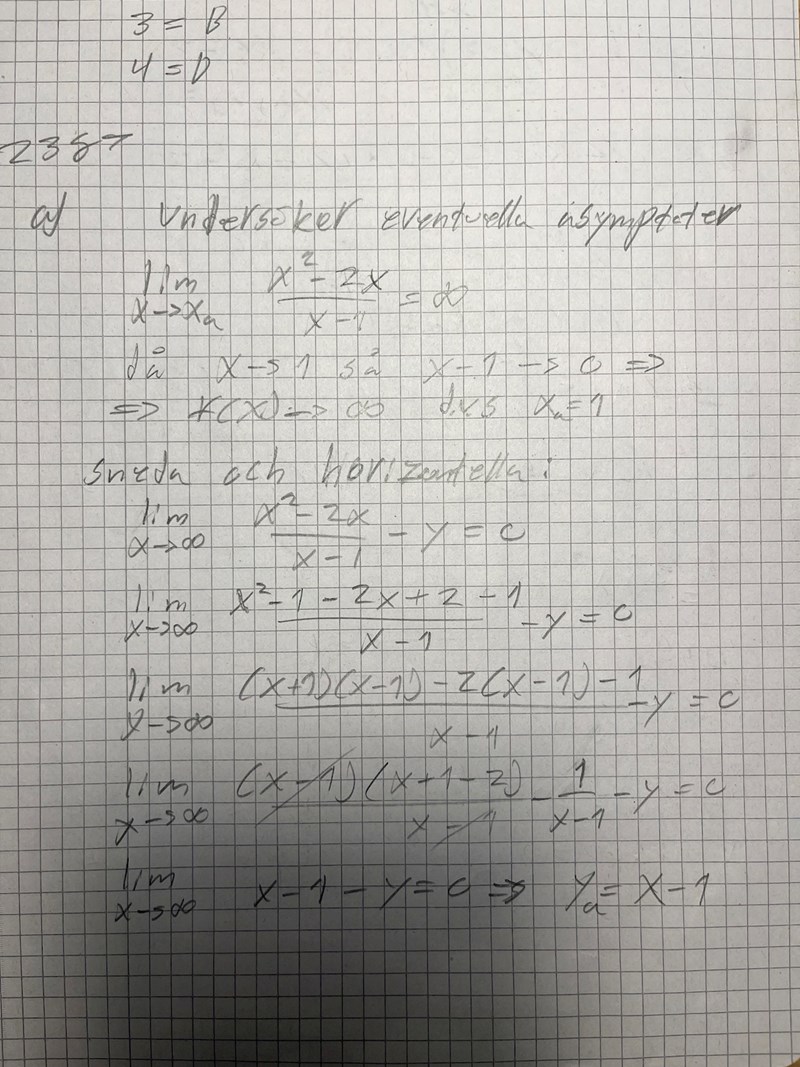 3 = B
4 = D
2357
a) Undersöker eventuella asymptoter
lim x→xₐ (x² - 2x)/(x - 1) = ∞
då x→1 så x-1 → 0 ⇒
⇒ f(x) → ∞ dvs xₐ = 1
sneda och horizontella:
lim x→∞ (x² - 2x)/(x - 1) - y = 0
lim x→∞ (x² - 1 - 2x + 2 - 1)/(x - 1) - y = 0
lim x→∞ ((x+1)(x-1) - 2(x-1) - 1)/(x - 1) - y = 0
lim x→∞ ((x-1)(x+1-2))/(x-1) - 1/(x-1) - y = 0
lim x→∞ x - 1 - y = 0 ⇒ yₐ = x - 1